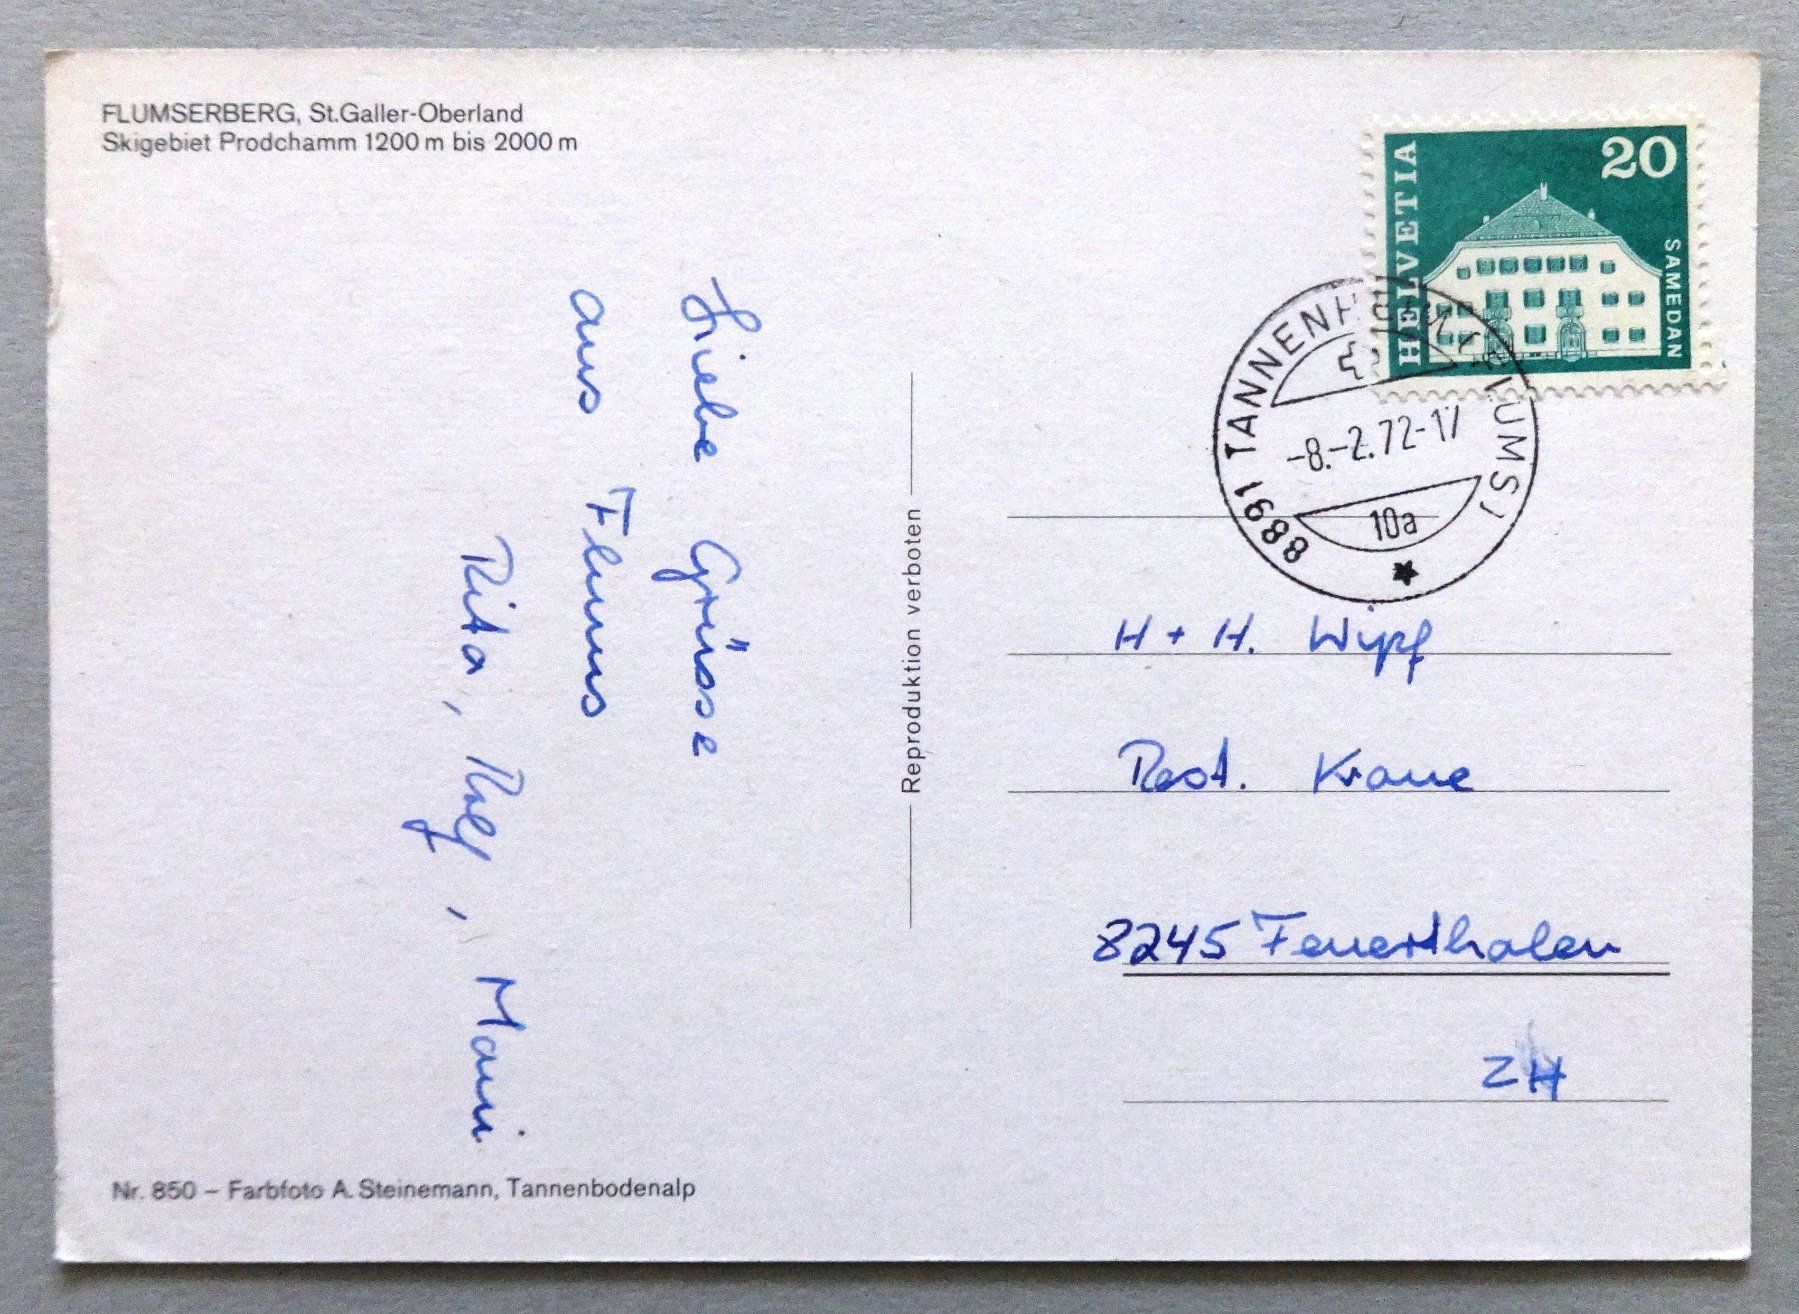 FLUMSERBERG, St.Galler-Oberland
Skigebiet Prodchamm 1200 m bis 2000 m
Liebe Grüsse
aus Flums
Rita, Rolf, Mani
Nr. 850 – Farbfoto A. Steinemann, Tannenbodenalp
Reproduktion verboten
HELVETIA
20
SAMEDAN
8891 TANNENH
UMS)
-8.-2.72-17
10a
H + H. Wipf
Rest. Krone
8245 Feuerthalen
ZH